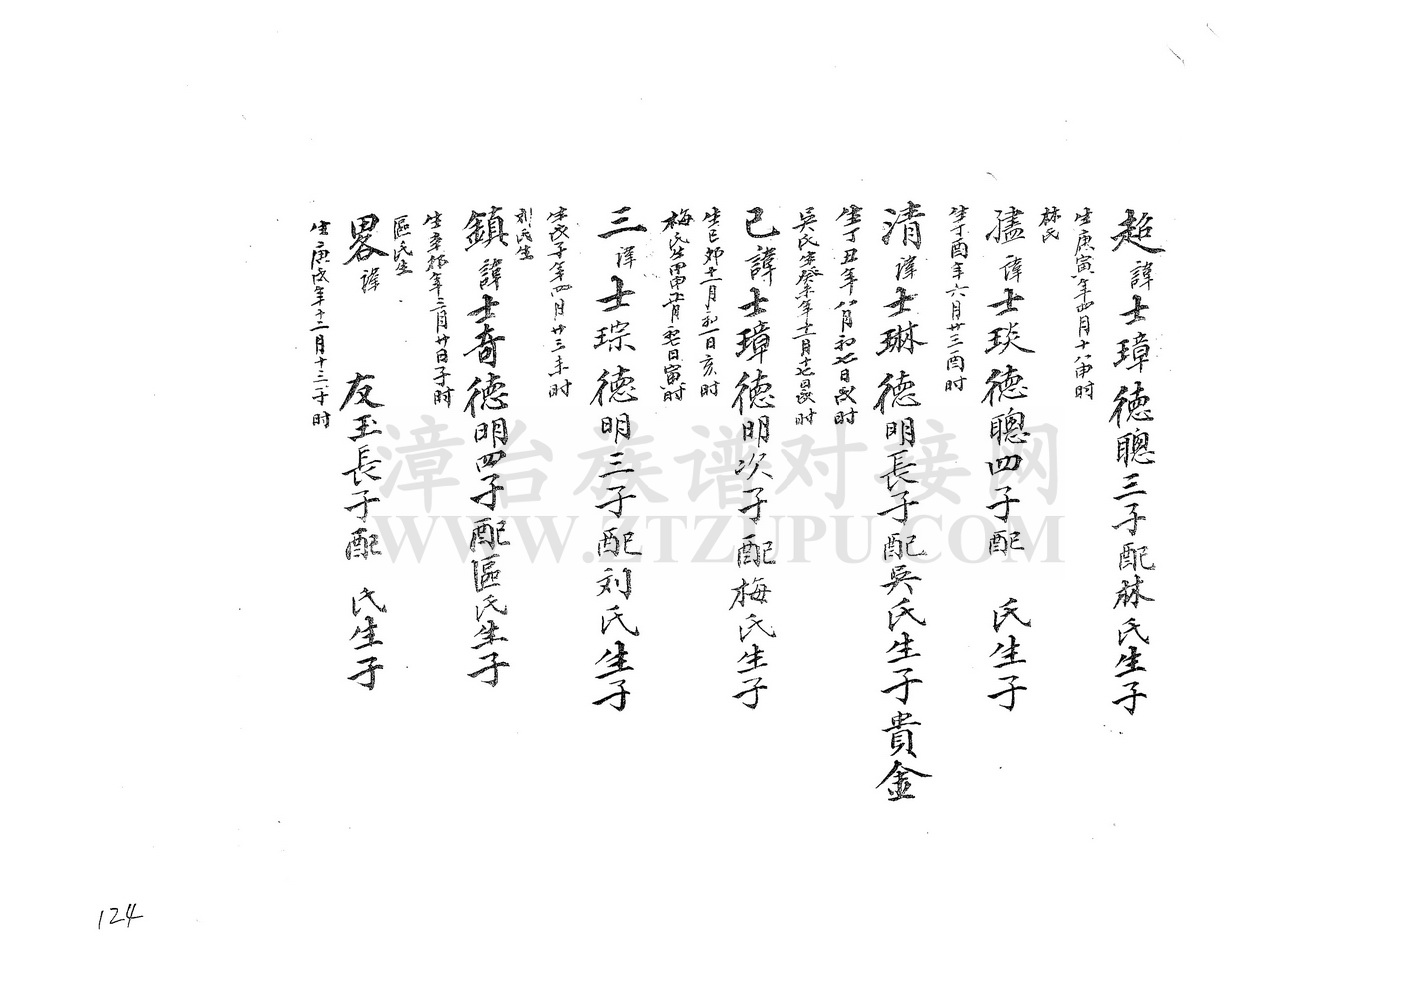 超 諱士璋德聰三子配林氏生子
生庚寅年四月十八申时
林氏
諱士琰德聰四子配 氏生子
生丁酉年六月廿三酉时
清諱士琳德明長子配吳氏生子貴金
生丁丑年八月初七日戌时
吳氏生癸未年十二月十七日辰时
已諱士璋德明次子配梅氏生子
生已卯十一月初一日亥时
梅氏生甲申 月初七日寅时
三諱士琮德明三子配刘氏生子
生戊子年四月廿三未时
刘氏生
鎮諱士奇德明四子配區氏生子
生辛 年二月廿日子时
區氏生
畧諱 友玉長子配 氏生子
生庚戌年十二月十三子时
漳台族谱对接网
WWW.ZTZUPU.COM
124